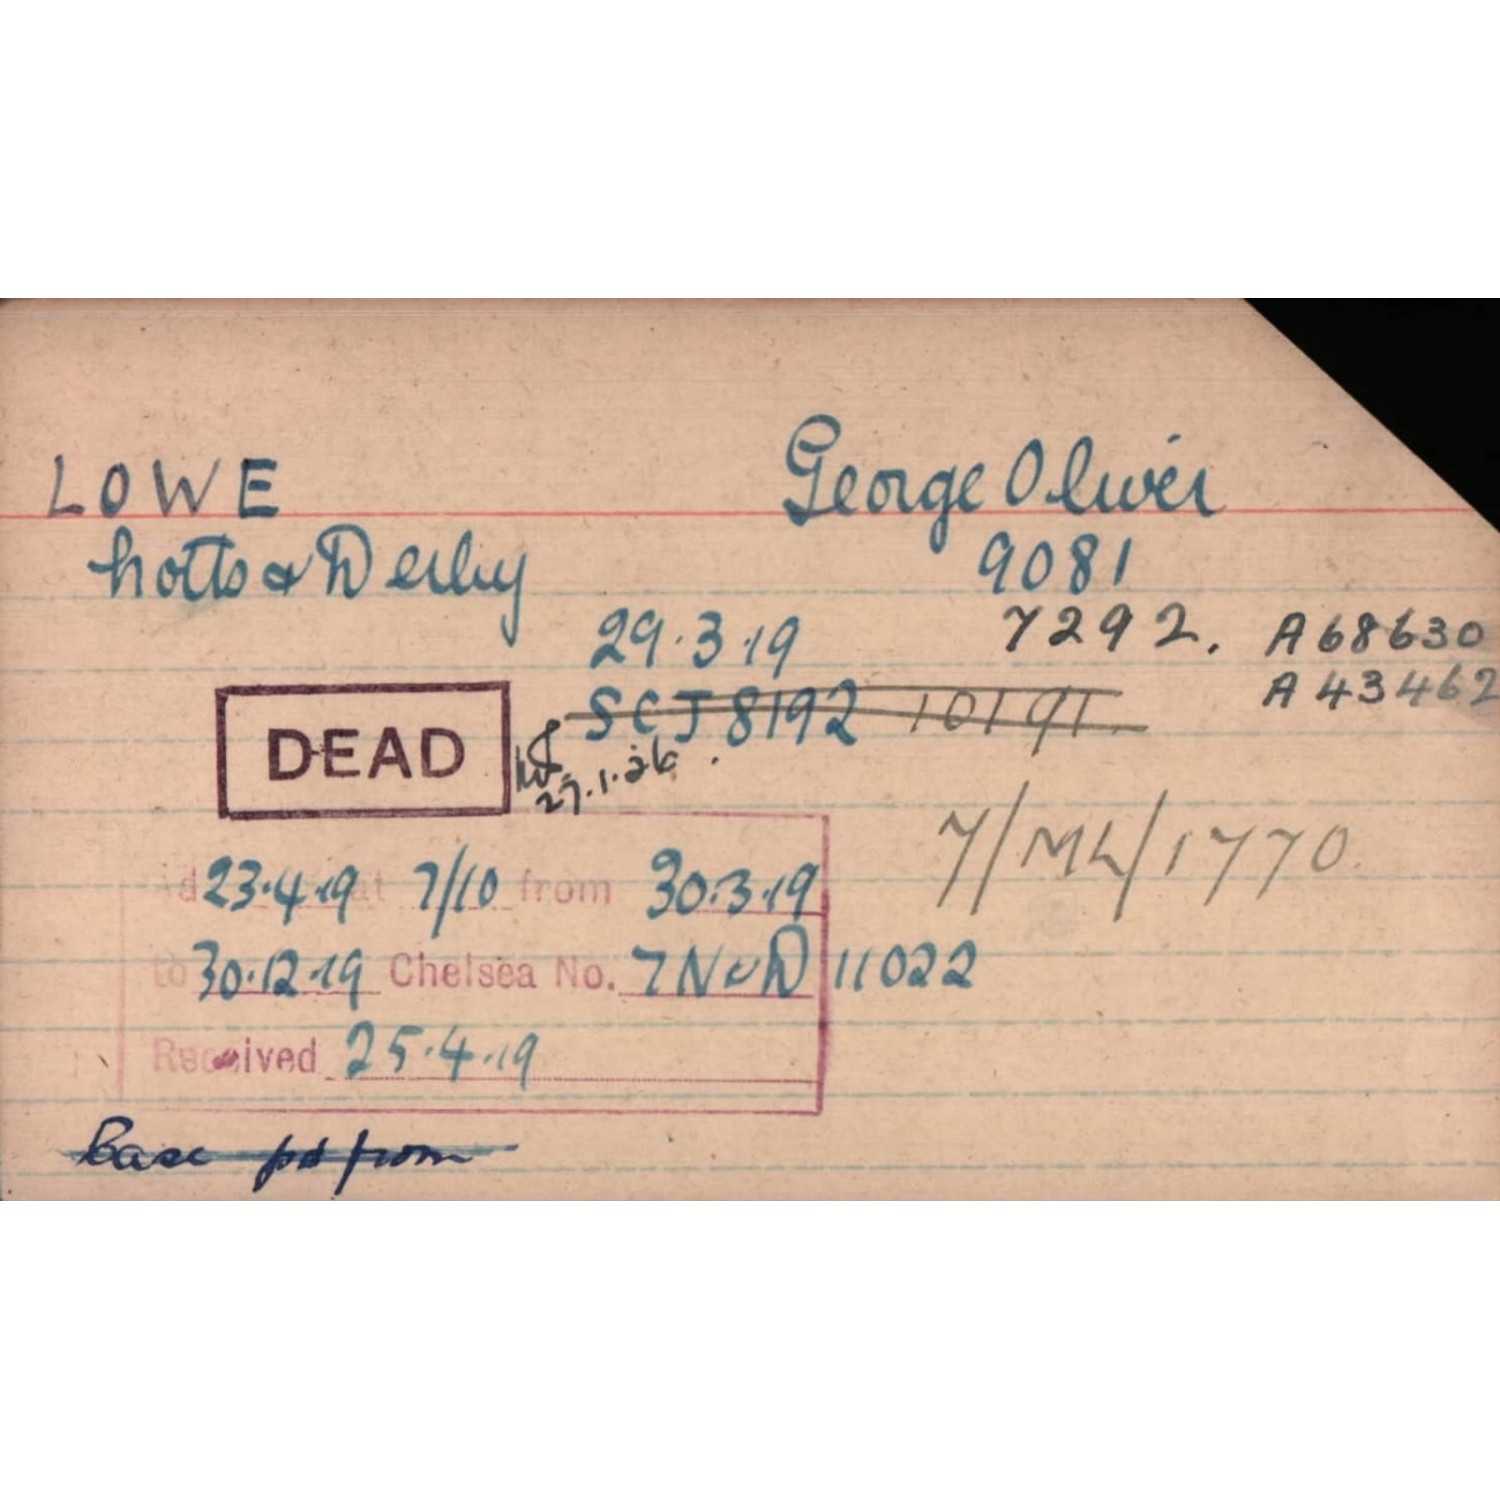 LOWE George Oliver
Notts & Derby 9081
29.3.19 7292. A68630
SCJ 8192 10191 A43462
DEAD
27.1.26
7/ML/1770.
23.4.19 at 7/10 from 30.3.19
to 30.12.19 Chelsea No. 7 N & D 11022
Received 25.4.19
Case pd from